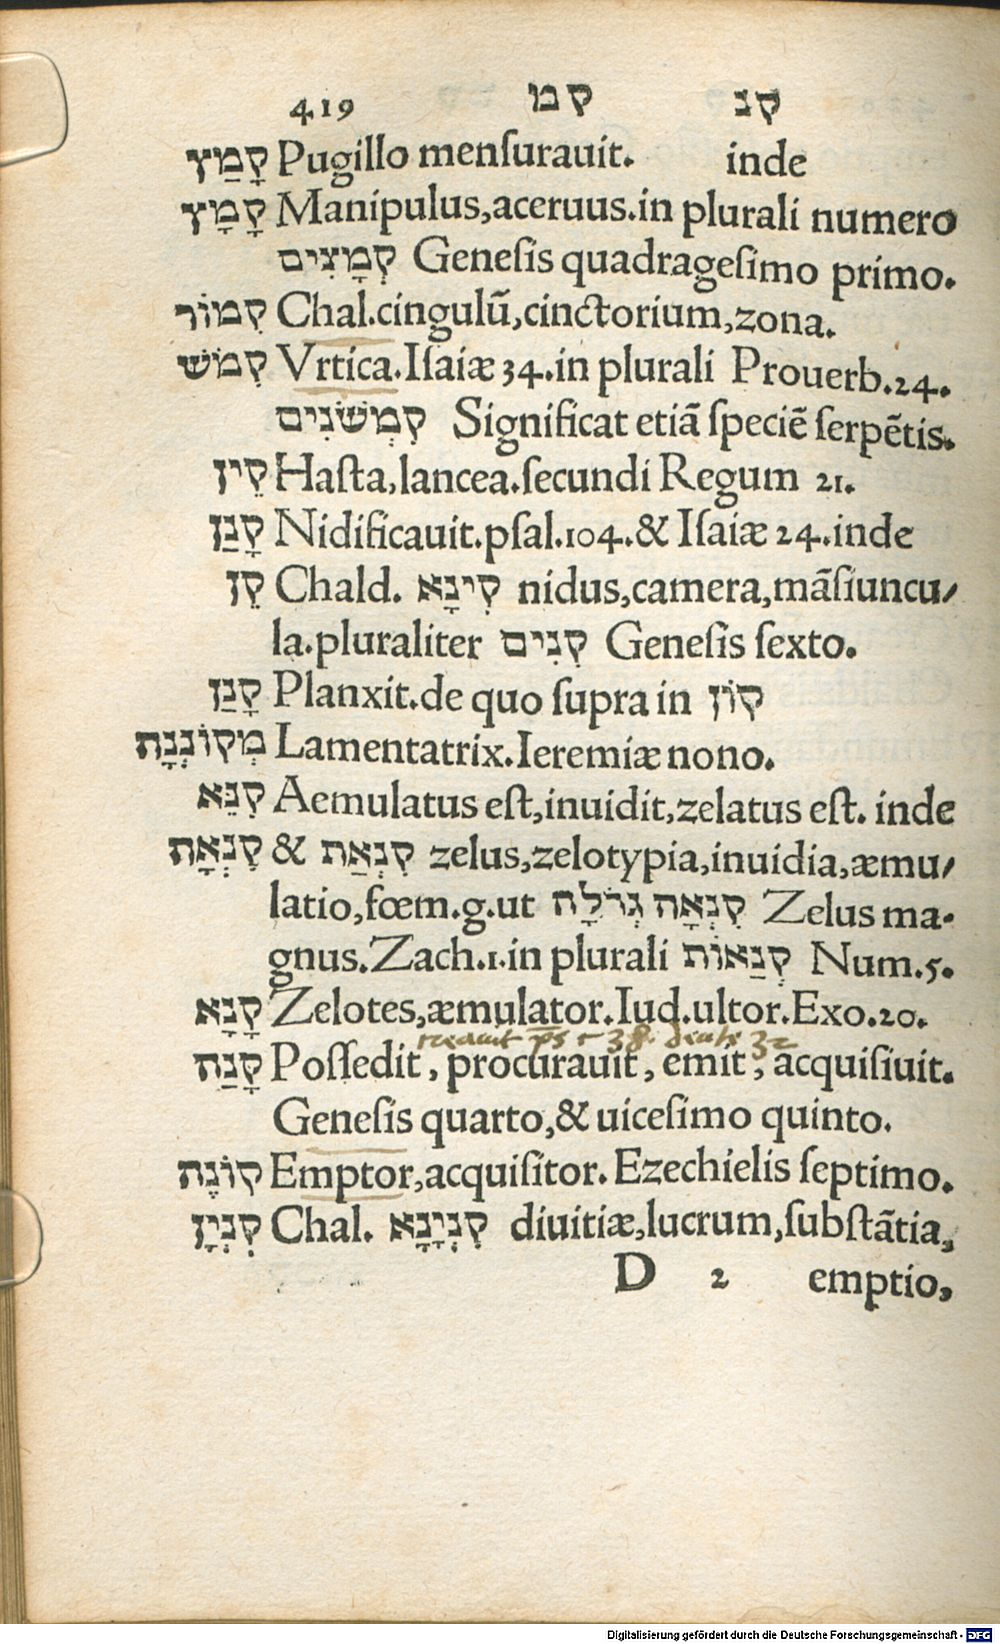 419 קמ קנ
קָמַץ Pugillo menſurauit. inde
קָמָץ Manipulus,aceruus.in plurali numero
קְמָצִים Geneſis quadrageſimo primo.
קִמוֹר Chal.cingulū,cinctorium,zona.
קִמֹשׁ Vrtica.Iſaiæ 34.in plurali Prouerb.24.
קִמְשֹׁנִים Significat etiā ſpeciē ſerpētis.
קֵין Haſta,lancea.ſecundi Regum 21.
קָנַן Nidificauit.pſal.104.& Iſaiæ 24.inde
קֵן Chald. קִינָא nidus,camera,māſiuncu/
la.pluraliter קִנִים Geneſis ſexto.
קָנַן Planxit.de quo ſupra in קוֹן
מְקוֹנְנָה Lamentatrix.Ieremiæ nono.
קִנֵּא Aemulatus eſt,inuidit,zelatus eſt. inde
קִנְאָה & קִנְאַת zelus,zelotypia,inuidia,æmu/
latio,fœm.g.ut קִנְאָה גְדֹלָה Zelus ma-
gnus.Zach.1.in plurali קְנַאוֹת Num.5.
קָנָא Zelotes,æmulator.Iud.ultor.Exo.20.
creauit ps
קָנַה Poſſedit, procurauit, emit, acquiſiuit.
Geneſis quarto,& uiceſimo quinto.
קוֹנֶה Emptor,acquiſitor. Ezechielis ſeptimo.
קִנְיָן Chal. קִנְיָנָא diuitiæ,lucrum,ſubſtātia,
D 2 emptio,
Digitalisierung gefördert durch die Deutsche Forschungsgemeinschaft - DFG